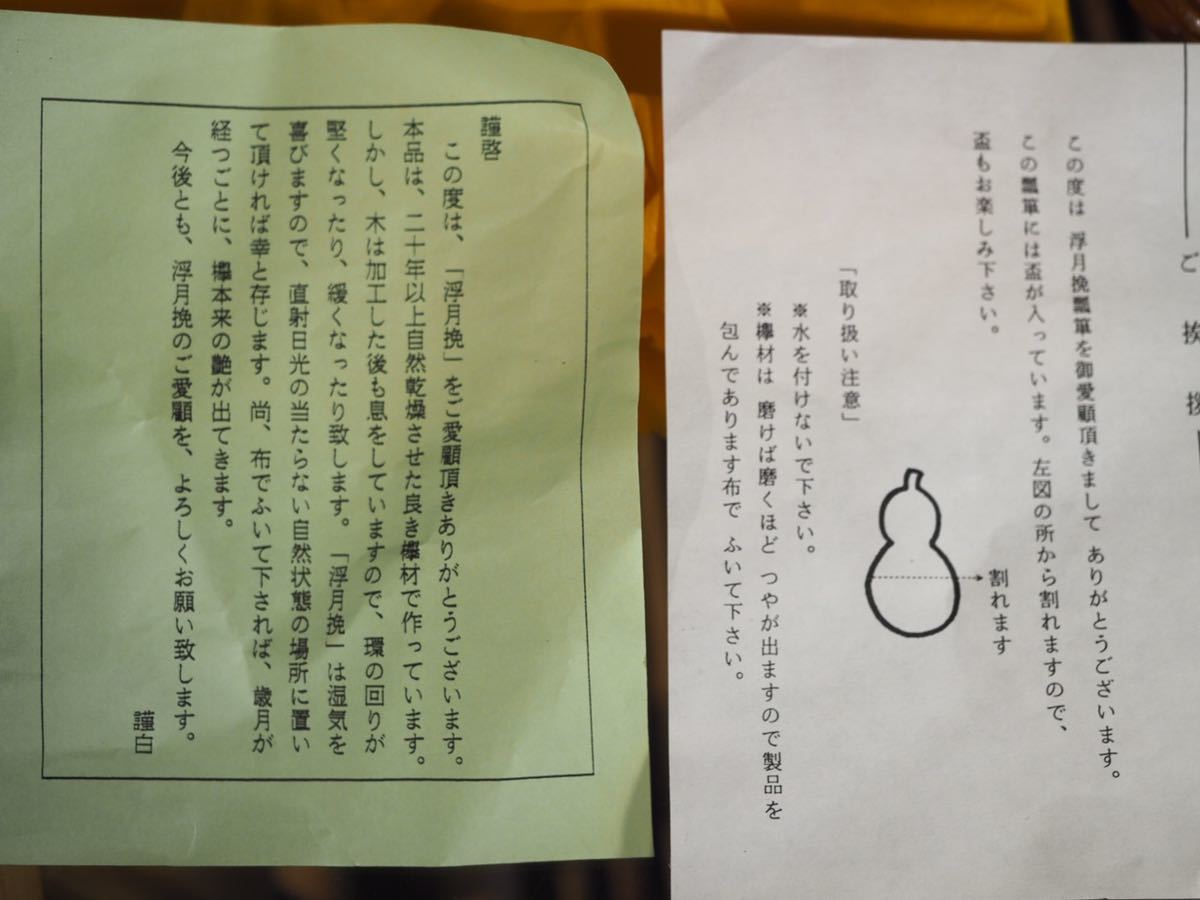 ご挨拶
この度は 浮月挽瓢箪を御愛顧頂きまして ありがとうございます。
この瓢箪には盃が入っています。左図の所から割れますので、
盃もお楽しみ下さい。
割れます
「取り扱い注意」
※水を付けないで下さい。
※欅材は 磨けば磨くほど つやが出ますので製品を
包んであります布で ふいて下さい。
謹啓
この度は、「浮月挽」をご愛顧頂きありがとうございます。
本品は、二十年以上自然乾燥させた良き欅材で作っています。
しかし、木は加工した後も息をしていますので、環の回りが
堅くなったり、緩くなったり致します。「浮月挽」は湿気を
喜びますので、直射日光の当たらない自然状態の場所に置い
て頂ければ幸と存じます。尚、布でふいて下されば、歳月が
経つごとに、欅本来の艶が出てきます。
今後とも、浮月挽のご愛顧を、よろしくお願い致します。
謹白